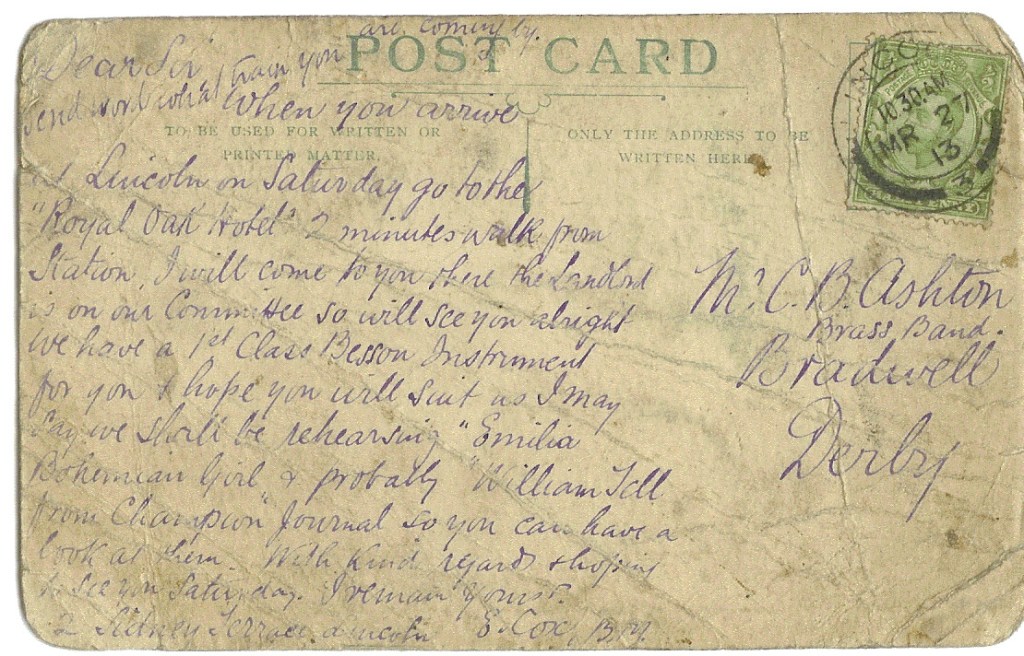 POST CARD
TO BE USED FOR WRITTEN OR
PRINTED MATTER.
ONLY THE ADDRESS TO BE
WRITTEN HERE
LINCOLN
10 30 AM
MR 27
13
Send word what train you are coming by.
Dear Sir
When you arrive
at Lincoln on Saturday go to the
"Royal Oak Hotel" 2 minutes walk from
Station, I will come to you there the Landlord
is on our Committee so will see you alright
We have a 1st Class Besson Instrument
for you & hope you will suit us I may
say we shall be rehearsing "Emilia
Bohemian Girl & probably "William Tell
from Champion Journal so you can have a
look at them. With kind regards & hoping
to see you Saturday. I remain Yours
2 Sidney Terrace Lincoln E. Cox,
Mr C. B. Ashton
Brass Band.
Bradwell
Derby